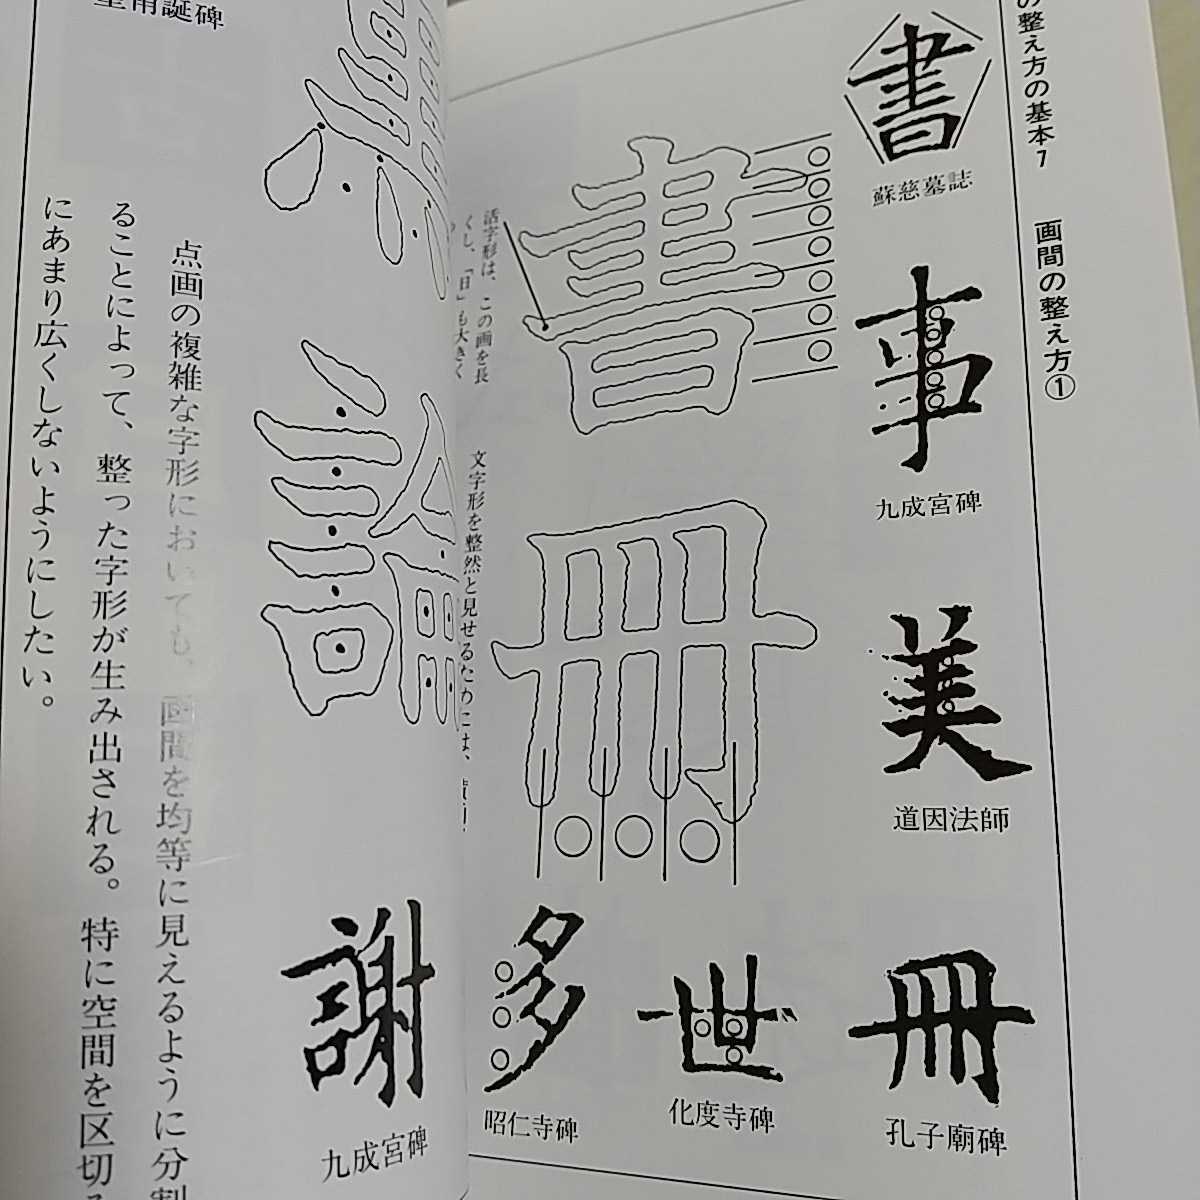 の整え方の基本7　画間の整え方①
書
蘇慈墓誌
事
九成宮碑
美
道因法師
冊
孔子廟碑
書
冊
世
化度寺碑
多
昭仁寺碑
活字形は、この画を長
くし、「日」も大きく
文字形を整然と見せるためには、
論
謝
九成宮碑
誕碑
点画の複雑な字形においても、画間を均等に見えるように分割
ることによって、整った字形が生み出される。特に空間を区切
にあまり広くしないようにしたい。